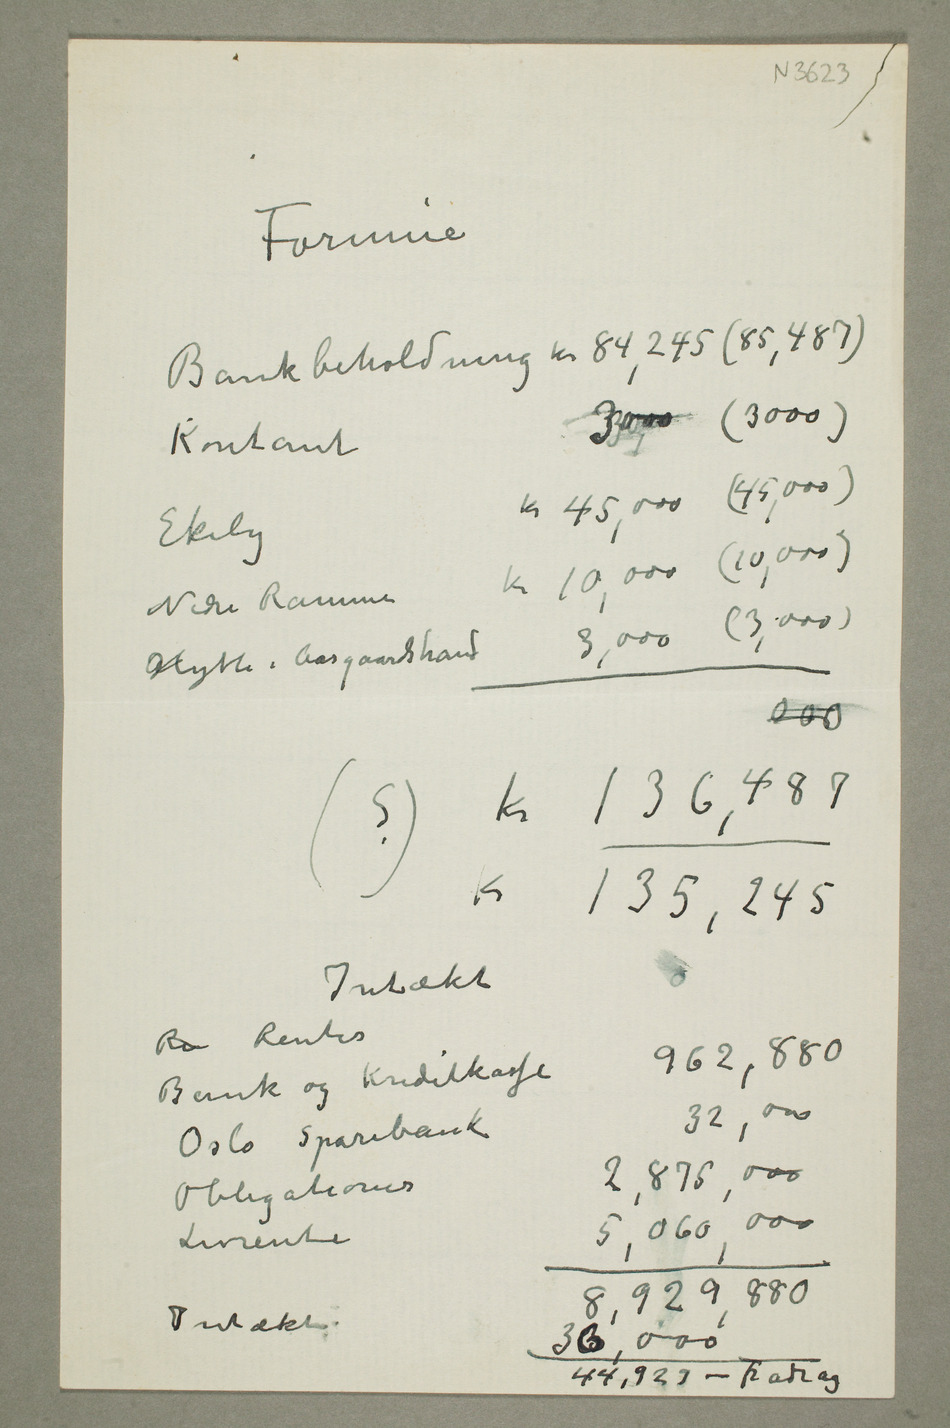 N3623
Formue
Bankbeholdning kr 84,245 (85,487)
Kontant 3000 (3000)
Ekely kr 45,000 (45,000)
Nedre Ramme kr 10,000 (10,000)
Hytte i Aasgaardstrand 3,000 (3,000)
000
(S) kr 136,487
kr 135,245
Intækt
Re Renter
Bank og Kreditkasse 962,880
Oslo Sparebank 32,000
Obligationer 2,875,000
Livrente 5,060,000
8,929,880
Intækt 36,000
44,929 — Fradrag